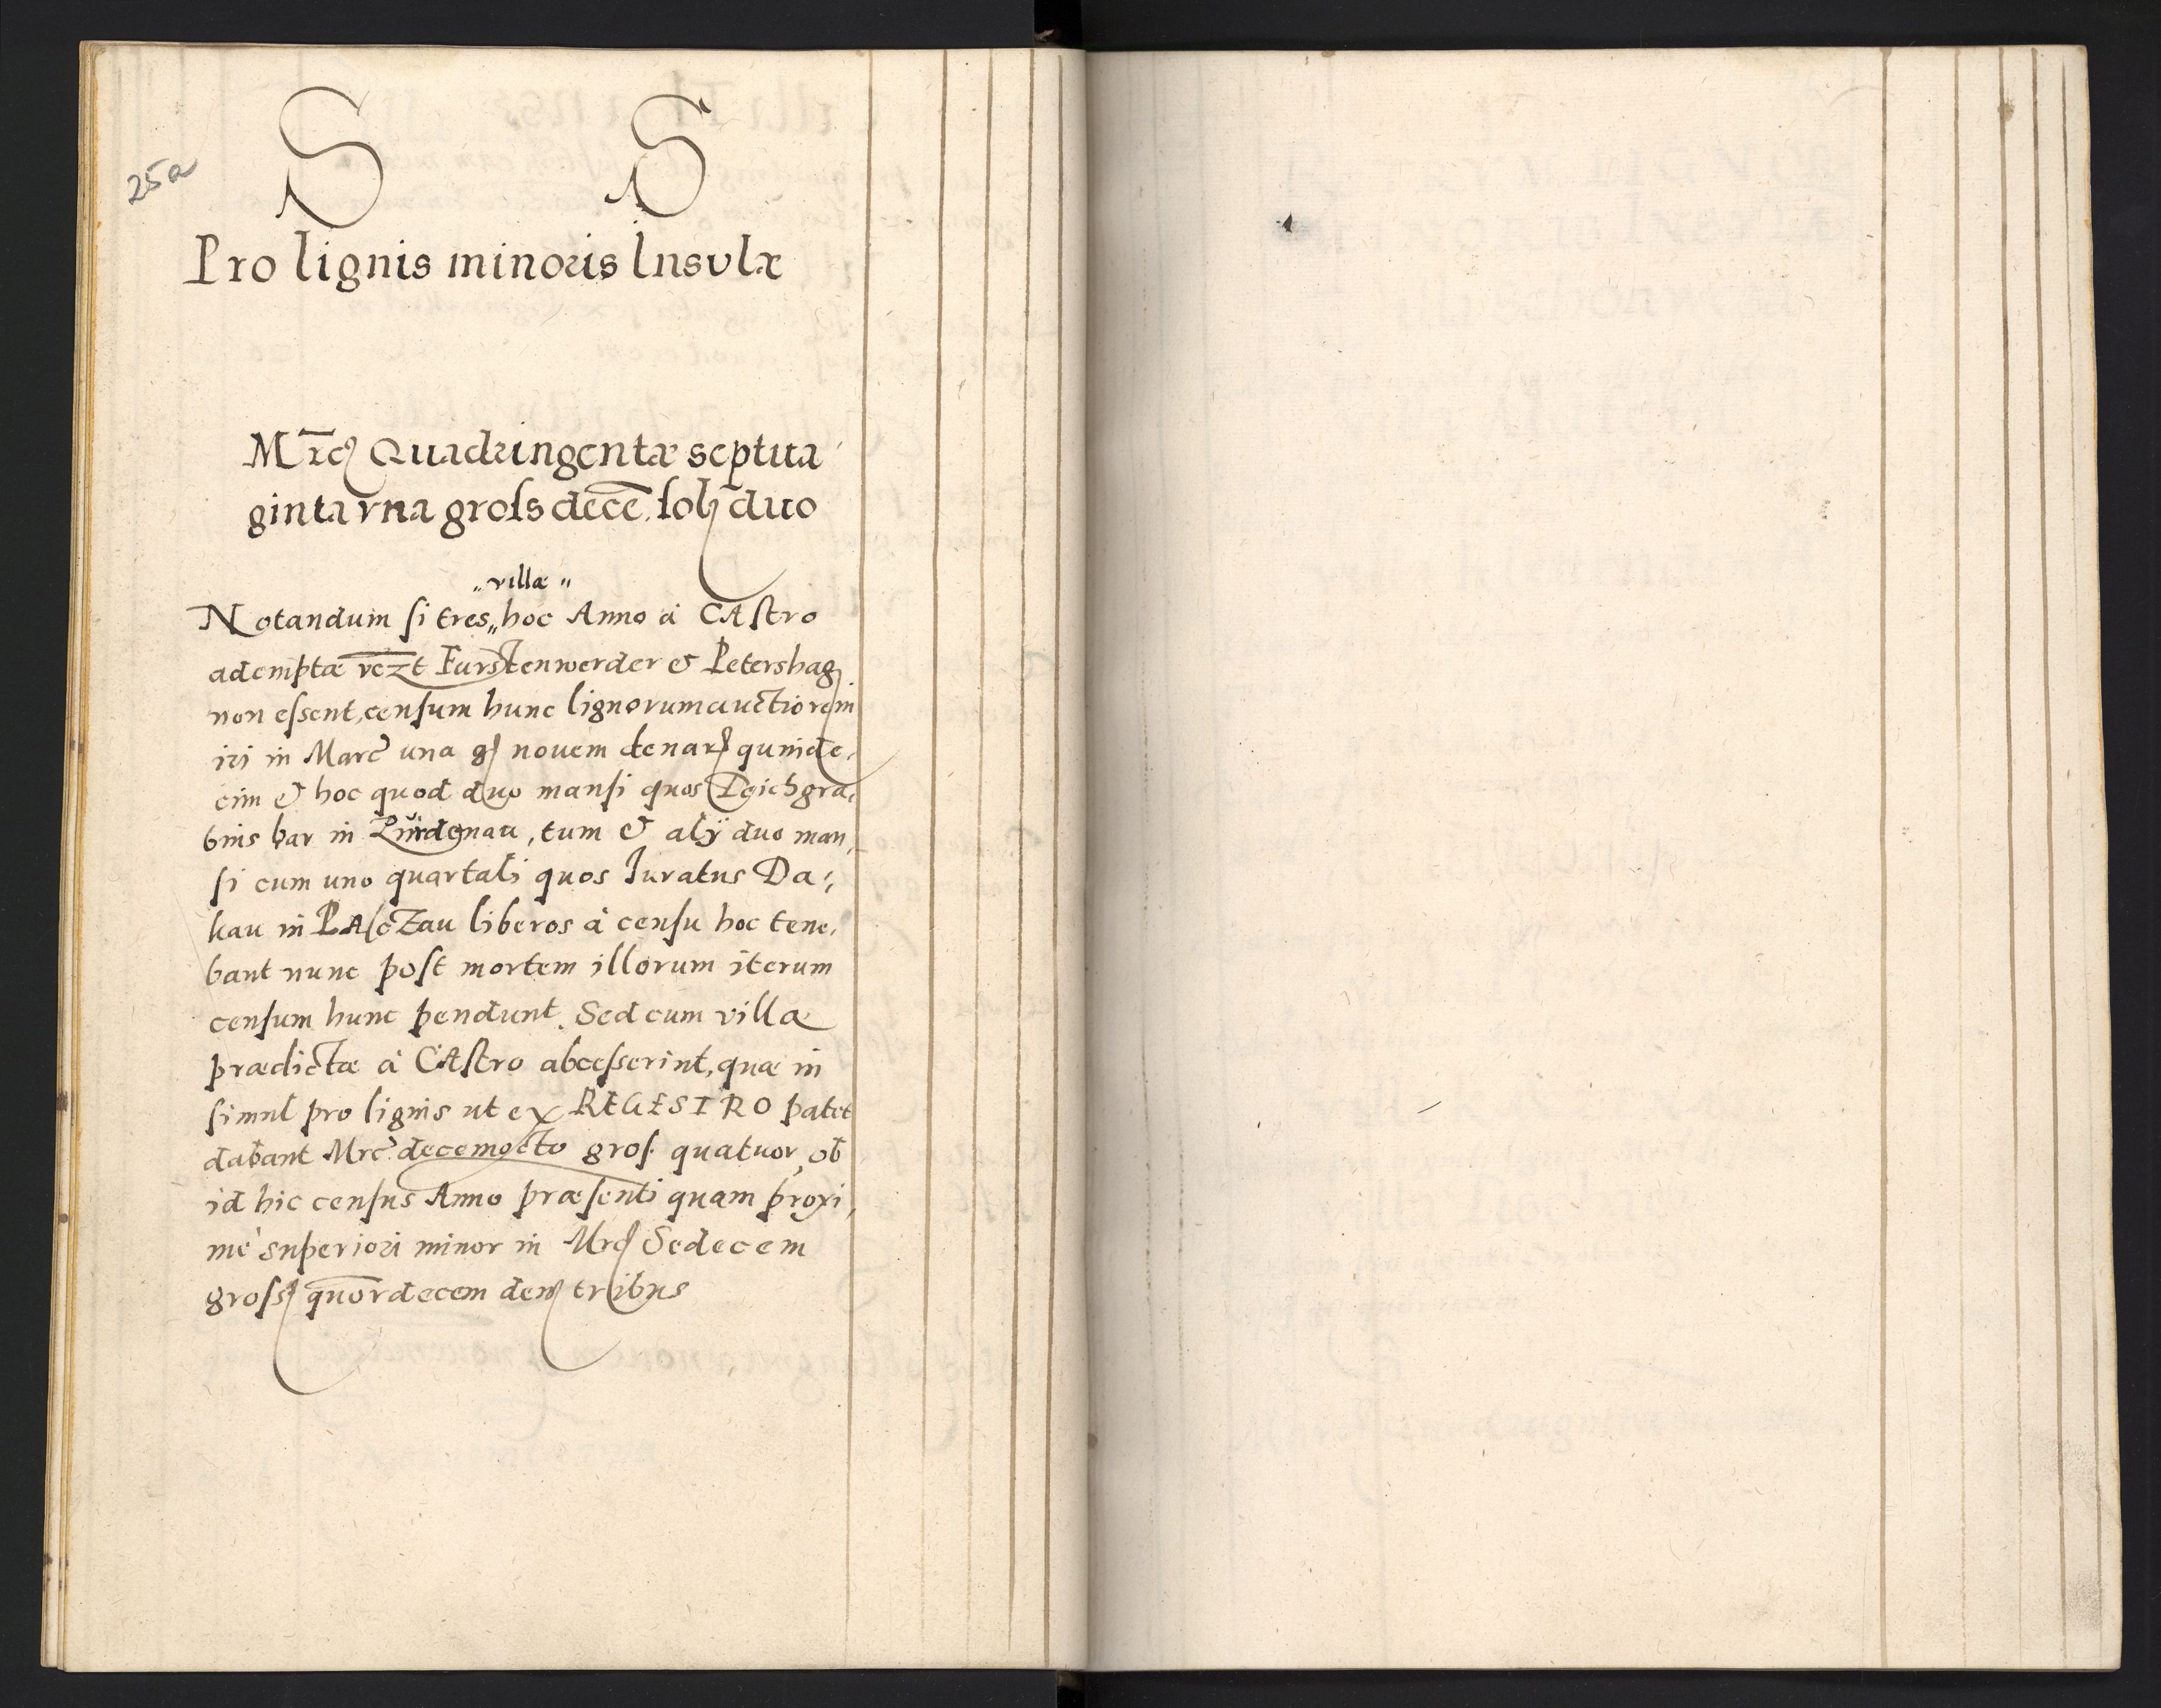 25a
S S
Pro lignis minoris Insulæ
Mrc̄ Quadringentæ septua
ginta vna groſs decē. ſol duo
„villæ„
Notandum ſi tres„ hoc Anno à CAſtro
ademptæ vczt Furstenwerder & Petershag
non eſsent, cenſum hunc lignorum auctiorem
iri in Marc una g novem denar quinde,
cim & hoc quod duo manſi quos Teichgra,
bius har in Lindenau, tum & alÿ duo man,
ſi cum uno quartali quos Iuratus Da,
kau in PAſcZau liberos à cenſu hoc tene,
bant nunc poſt mortem illorum iterum
cenſum hunc pendunt. Sed cum villæ
prædictæ à CAſtro abceſserint, quæ in
ſimul pro lignis ut ex REGESTRO patet
dabant Mrc decemocto groſ. quatuor, ob
id hic cenſus Anno præſenti quam proxi,
mè superiori minor in Mrc Sedecem
groſs quordecem den tribus